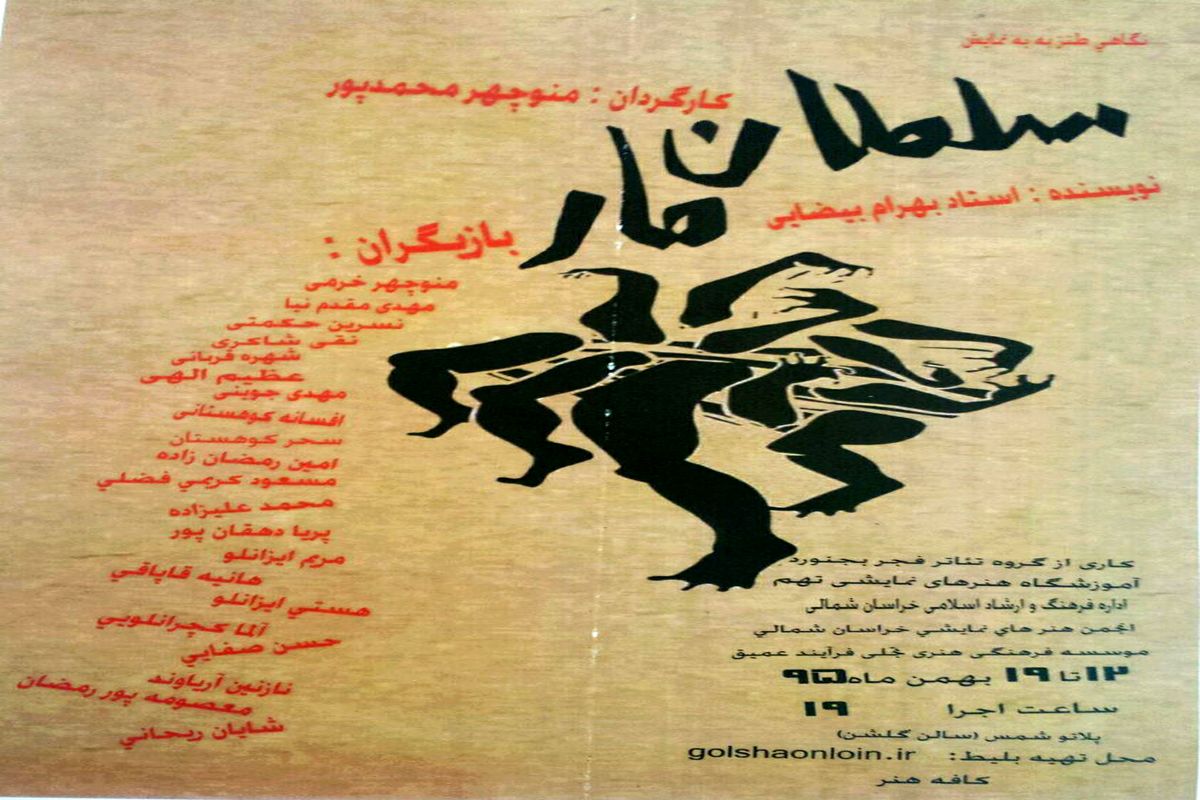 نگاهي طنز به به نمايش
سلطان مار
کارگردان : منوچهر محمدپور
نویسنده : استاد بهرام بیضایی
بازیگران :
منوچهر خرمی
مهدی مقدم نیا
نسرین حکمتی
نقی شاکری
شهره قربانی
عظیم الهی
مهدی جوینی
افسانه کوهستانی
سحر کوهستان
امین رمضان زاده
مسعود کرمي فضلي
محمد علیزاده
پریا دهقان پور
مریم ایزانلو
هانیه قاپاقي
هستي ایزانلو
آلما کچرانلویي
حسن صفایي
نازنین آریاوند
معصومه پور رمضان
شایان ریحاني
کاری از گروه تئاتر فجر بجنورد
آموزشگاه هنرهای نمایشی تهم
اداره فرهنگ و ارشاد اسلامی خراسان شمالی
انجمن هنر هاي نمایشي خراسان شمالي
موسسه فرهنگی هنری تجلی فرآیند عمیق
۱۲ تا ۱۹ بهمن ماه ۹۵
ساعت اجرا ۱۹
پلاتو شمس (سالن گلشن)
محل تهیه بلیط: golshaonloin.ir
کافه هنر